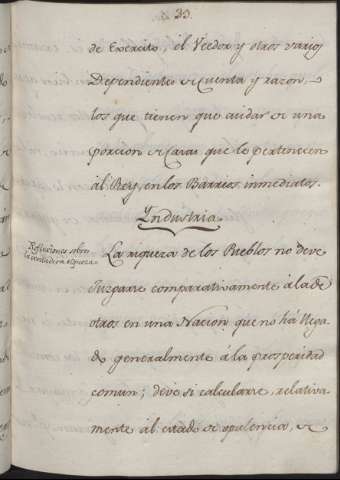 33.
de Exército, el Veedor y otros varios
Dependientes de Cuenta y razon,
los que tienen que cuidar de una
porcion de Casas que le pertenecen
al Rey, en los Barrios inmediatos.
Industria.
Reflexiones sobre
la verdadera riqueza
La riqueza de los Pueblos no deve
Juzgarse comparativamente á la de
otros en una Nacion que no há llega-
do generalmente á la prosperidad
comun; deve si calcularse, relativa-
mente al estado de opulencia, de